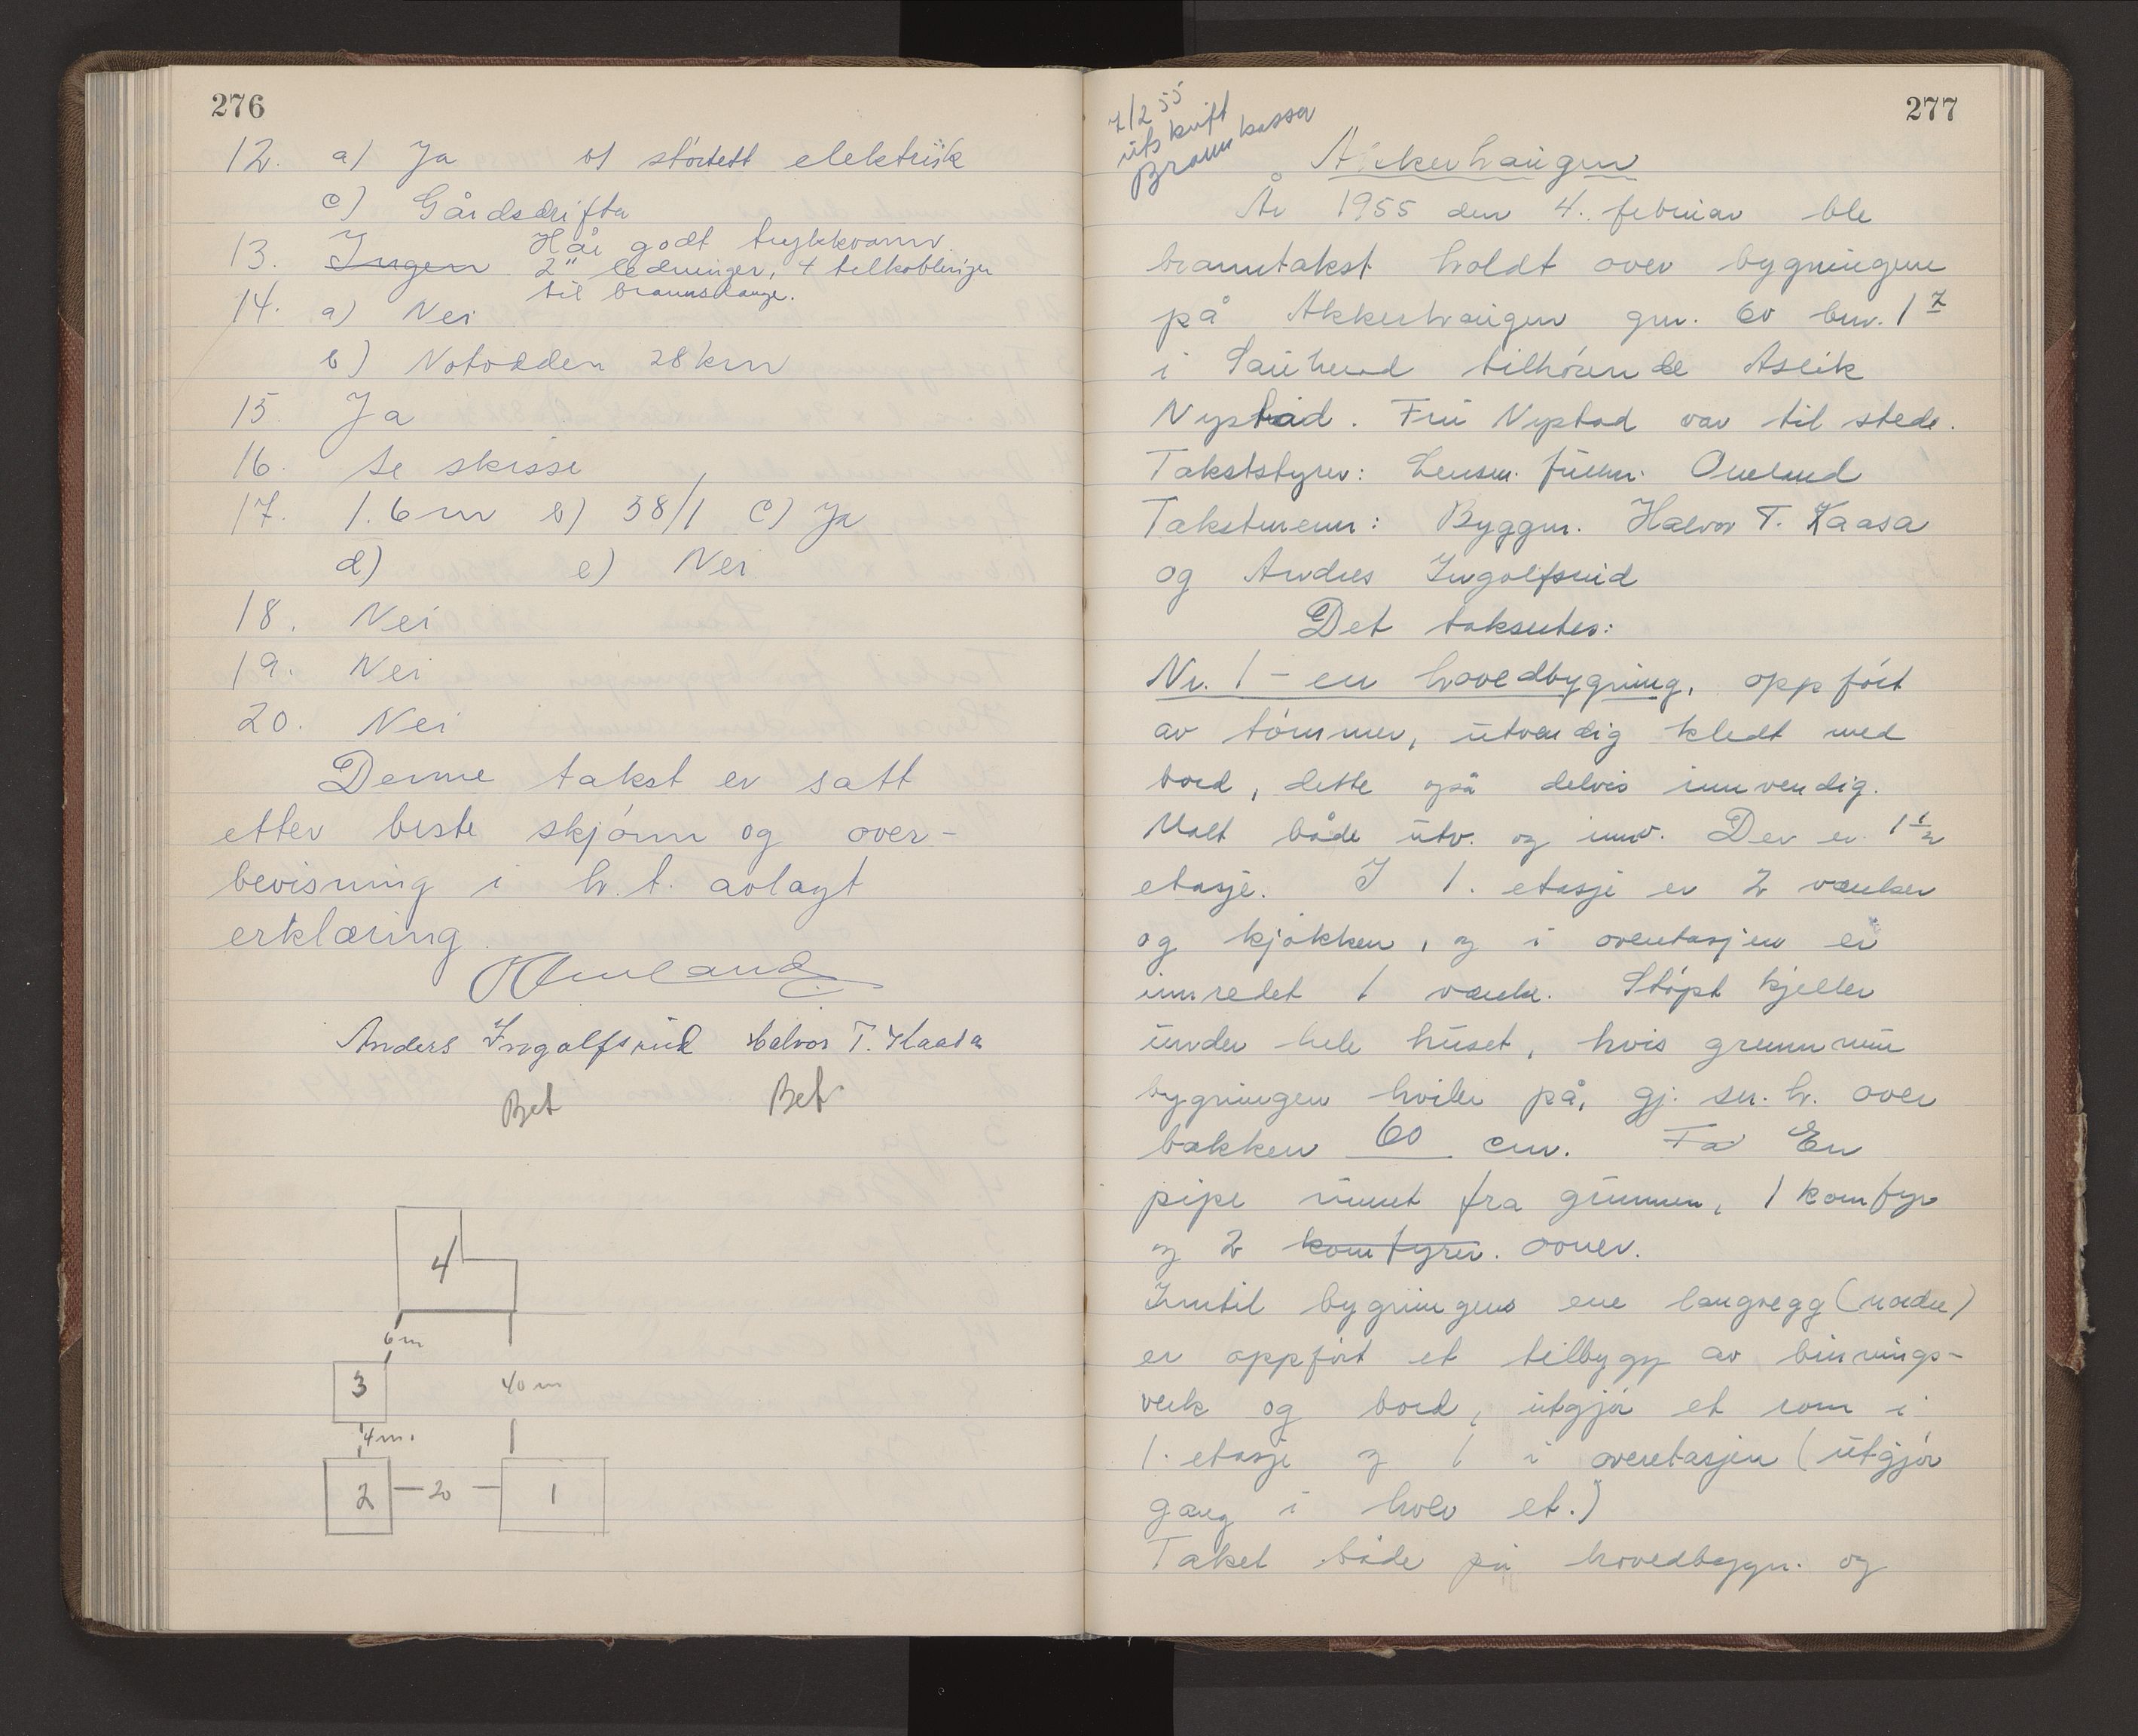 276
12. a) Ja b) støitett elektrisk
c) Gårdsdrifta
13. Ingen Har godt trykkvann.
2" ledninger, 4 tilkoblinger
til brannslange.
14. a) Nei
b) Notodden 28 km
15. Ja
16. Se skisse
17. 1. 6 m b) 38/1 c) Ja
d) e) Nei
18. Nei
19. Nei
20. Nei
Denne takst er satt
etter beste skjønn og over-
bevisning i h.t. avlagt
erklæring.
Omland
Anders Ingolfsrud Halvor T. Kaasa
Bet Bet
4
6 m
3 40 m
4 m.
2 — 20 — 1
277
7/2 55
utskrift
Brannkassa
Akkerhaugen
År 1955 den 4. februar ble
branntakst holdt over bygningene
på Akkerhaugen gnr. 60 bnr. 17
i Sauherad tilhørende Aslik
Nystad. Fru Nystad var til stede.
Takststyrer: Lensm. fullm. Omland
Takstmenn: Byggm. Halvor T. Kaasa
og Andres Ingolfsrud
Det takseres:
Nr. 1 – en hovedbygning, oppført
av tømmer, utvendig kledt med
bord, dette også delvis innvendig.
Malt både utv. og innv. Der er 1½
etasje. I 1. etasje er 2 værelser
og kjøkken, og i overetasjen er
innredet 1 værelse. Støpt kjeller
under hele huset, hvis grunnmur
bygningen hviler på, gj. sn. h. over
bakken 60 cm. Ta En
pipe muret fra grunnen, 1 komfyr
og 2 komfyrer. ovner.
Inntil bygningens ene langvegg (nordre)
er oppført et tilbygg av binnings-
verk og bord, utgjør et rom i
1. etasje og 1 i overetasjen (utgjør
gang i hver et.)
Taket både på hovedbygn. og